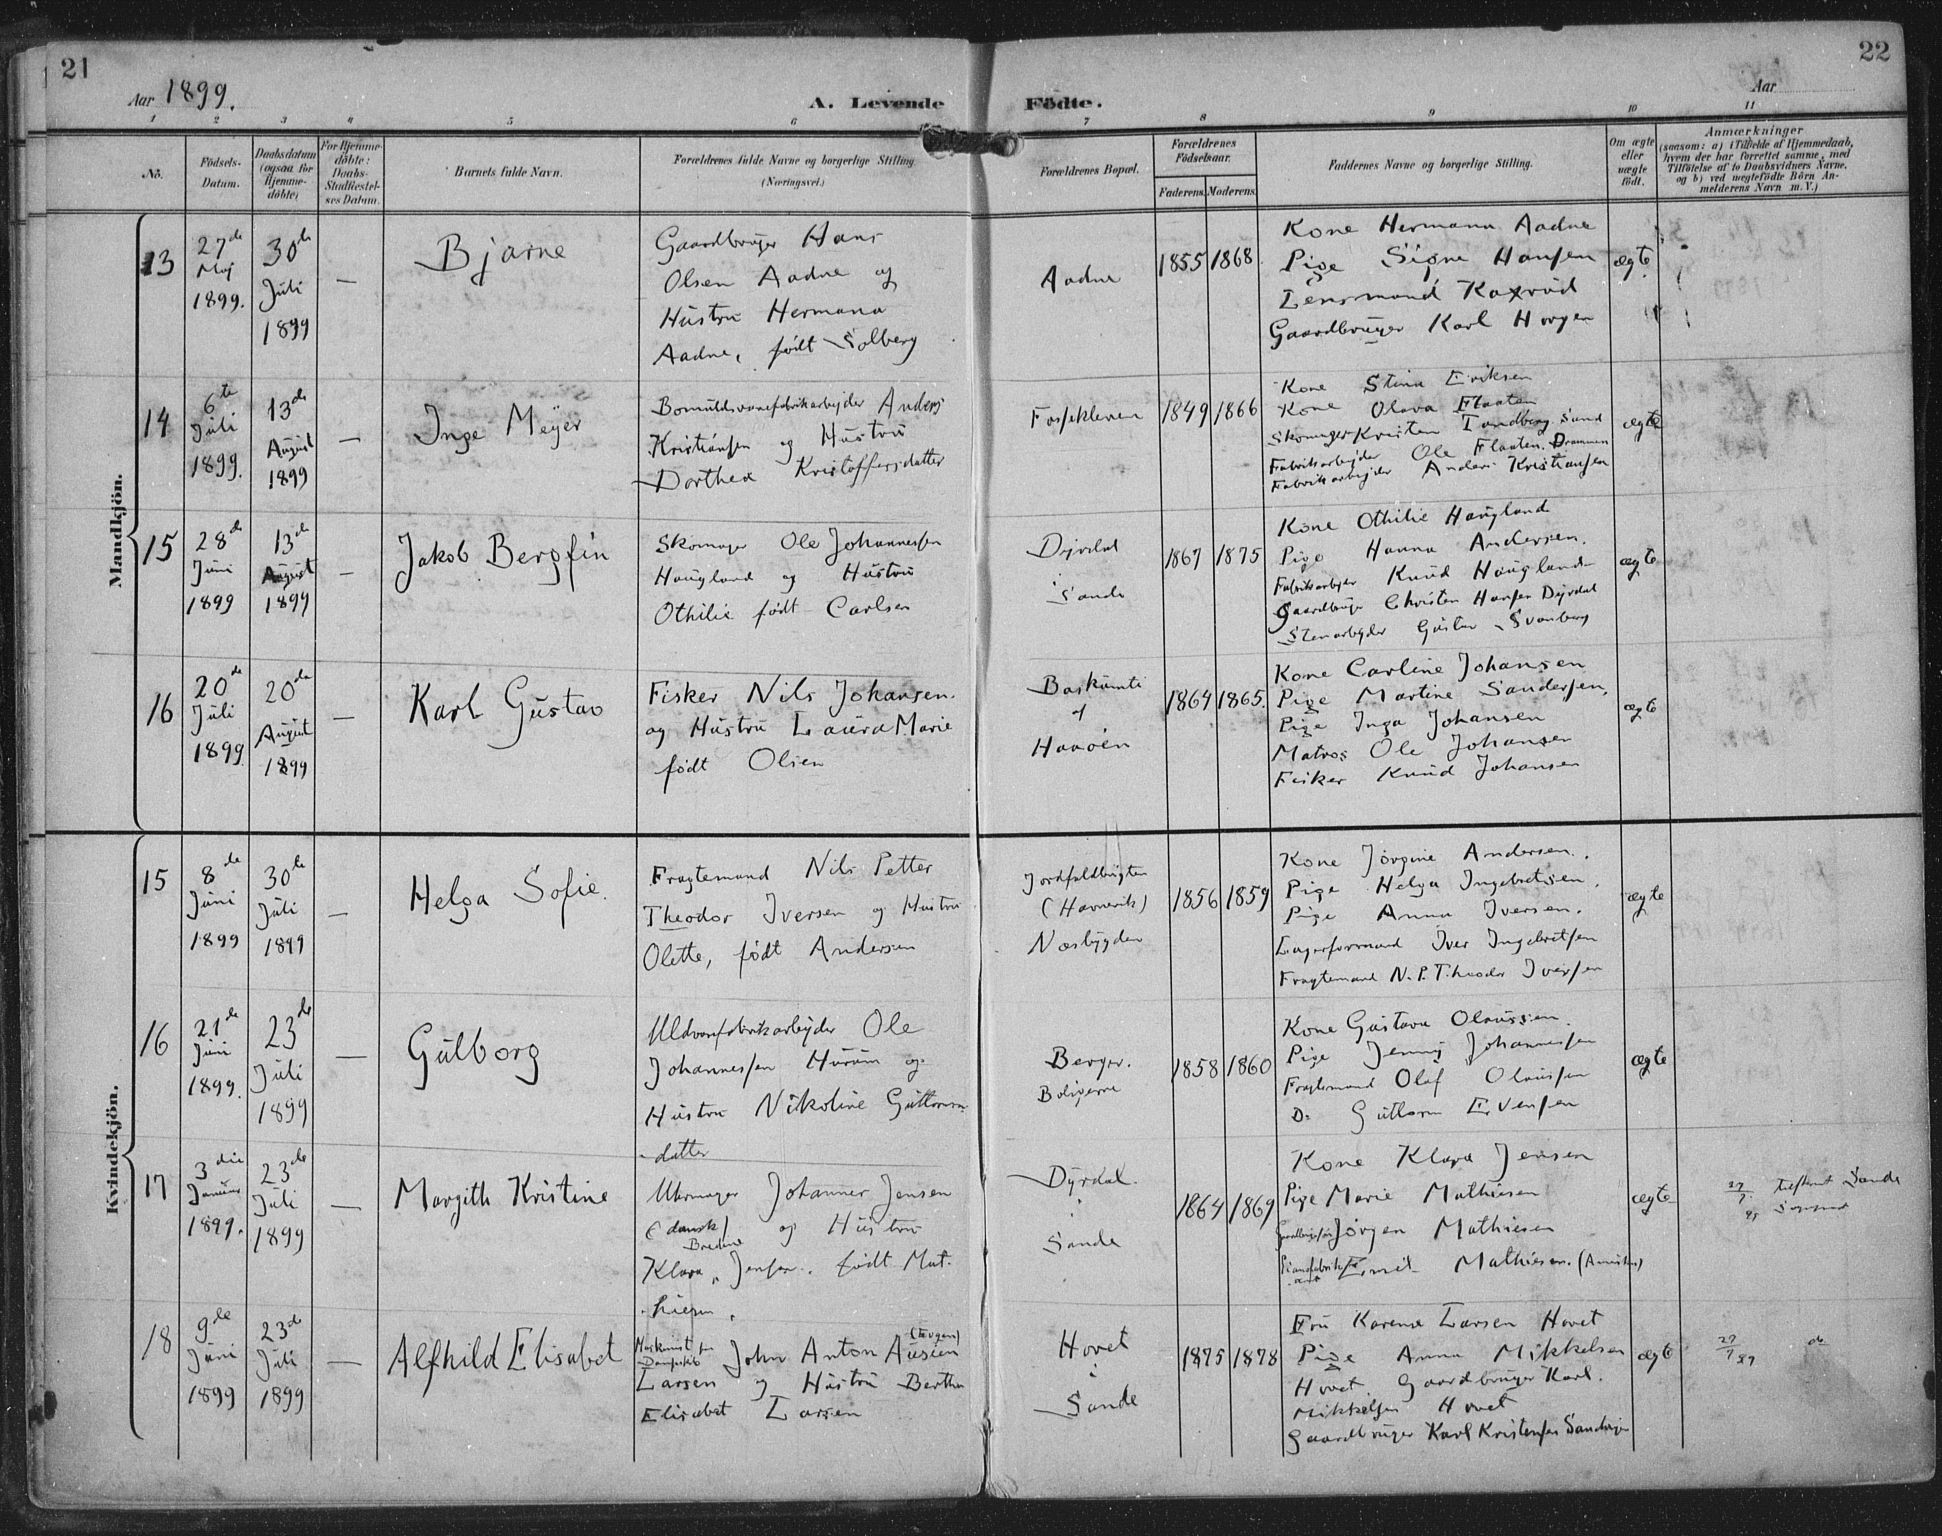 21
22
Aar 1899.
A. Levende
Födte.
Aar
1 2 3 4 5 6 7 8 9 10 11
No.
Födsels-Datum.
Daabsdatum (ogsaa for Hjemme-döbte)
For Hjemme-döbte: Daabs-Stadfæstel-ses Datum.
Barnets fulde Navn.
Forældrenes fulde Navne og borgerlige Stilling.
(Næringsvei.)
Forældrenes Bopæl.
Forældrenes Födselsaar.
Faderens. Moderens.
Faddernes Navne og borgerlige Stilling.
Om ægte eller uægte födt.
Anmærkninger
(saasom: a) i Tilfælde af Hjemmedaab, hvem der har forrettet samme, med Tilföielse af to Daabsvidners Navne, og b) ved uægtefödte Börn An-melderens Navn m. V.)
Mandkjön.
13
27de Maj 1899.
30de Juli 1899
—
Bjarne
Gaardbruger Hans
Olsen Aadne og
Hustru Hermana
Aadne, født Solberg
Aadne
1855 1868
Kone Hermana Aadne
Pige Signe Hansen
Lensmand
Gaardbruger Karl Horgen
ægte
14
6te Juli 1899.
13de August 1899
—
Inge Meyer
Bomuldsvarefabrikarbejder Anders
Kristiansen og Hustru
Dorthea Kristoffersdatter
Fossekleven
1849 1866
Kone Stina Eriksen
Kone Olava Flaaten
Skomager Kristen Tandberg. Sand
Fabrikarbejder Ole Flaaten. Drammen
Fabrikarbejder Anders Kristiansen
ægte
15
28de Juni 1899
13de August 1899
—
Jakob Bergfin
Skomager Ole Johannessen
Haugland og Hustru
Othilie født Carlsen
Dyrdal
Sande
1867 1875
Kone Othilie Haugland
Pige Hanna Andersen.
Fabrikarbejder Knud Haugland
Gaardbruger Christen Hansen Dyrdal
Stenarbejder Gustav Svanberg
ægte
16
20de Juli 1899
20de August 1899
—
Karl Gustav
Fisker Nils Johansen
og Hustru Laura Marie
født Olsen
Baskumti
af
Havøen
1864 1865.
Kone Carline Johansen
Pige Martine Sandersen,
Pige Inga Johansen
Matros Ole Johansen
Fisker Knud Johansen
ægte
Kvindekjön.
15
8de Juni 1899
30te Juli 1899
—
Helga Sofie.
Fragtemand Nils Petter
Theodor Iversen og Hustru
Olette, født Andersen
(Havnevik)
Næsbygden
1856 1859
Kone Jørgine Andersen.
Pige Helga Ingebretsen,
Pige Anna Iversen.
Lagerformand Iver Ingebretsen
Fragtemand N. P. Theodor Iversen
ægte
16
21de Juni 1899.
23de Juli 1899
—
Gulborg
Uldvarefabrikarbejder Ole
Johannessen Hurum og
Hustru Nikoline Guttorms-
datter
Berger.
Boligerne
1858 1860
Kone Gustava Olaussen.
Pige Jenny Johannessen
Fragtemand Olaf Olaussen
Do Guttorm Evensen
ægte
17
3die Januar 1899.
23de Juli 1899
—
Margith Kristine
Uhrmager Johannes Jensen
(dansk) og Hustru
Klara Jensen. født Mat-
hiesen.
Dyrdal.
Sande
1864 1869
Kone Klara Jensen
Pige Marie Mathiesen
Jørgen Mathiesen
Emil Mathiesen.
ægte
Sande
18
9de Juni 1899
23de Juli 1899
—
Alfhild Elisabet
John Anton Ausien
Larsen og Hustru Bertha
Elisabet Larsen
Hovet
Sande
1875 1878
Fru Karense Larsen Hovet
Pige Anna Mikkelsen
Hovet. Gaardbruger Karl.
Mikkelsen Hovet
Gaardbruger Karl Kristensen
ægte
do